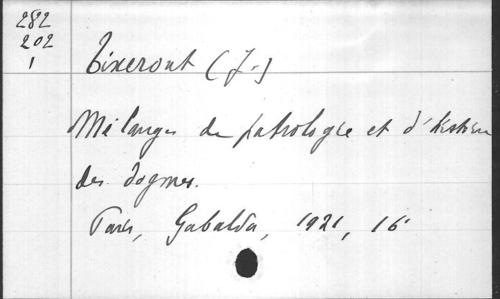 282
202
1
Tixeront (J.)
Mélanges de patrologie et d'histoire
des dogmes.
Paris, Gabalda, 1921, 16°